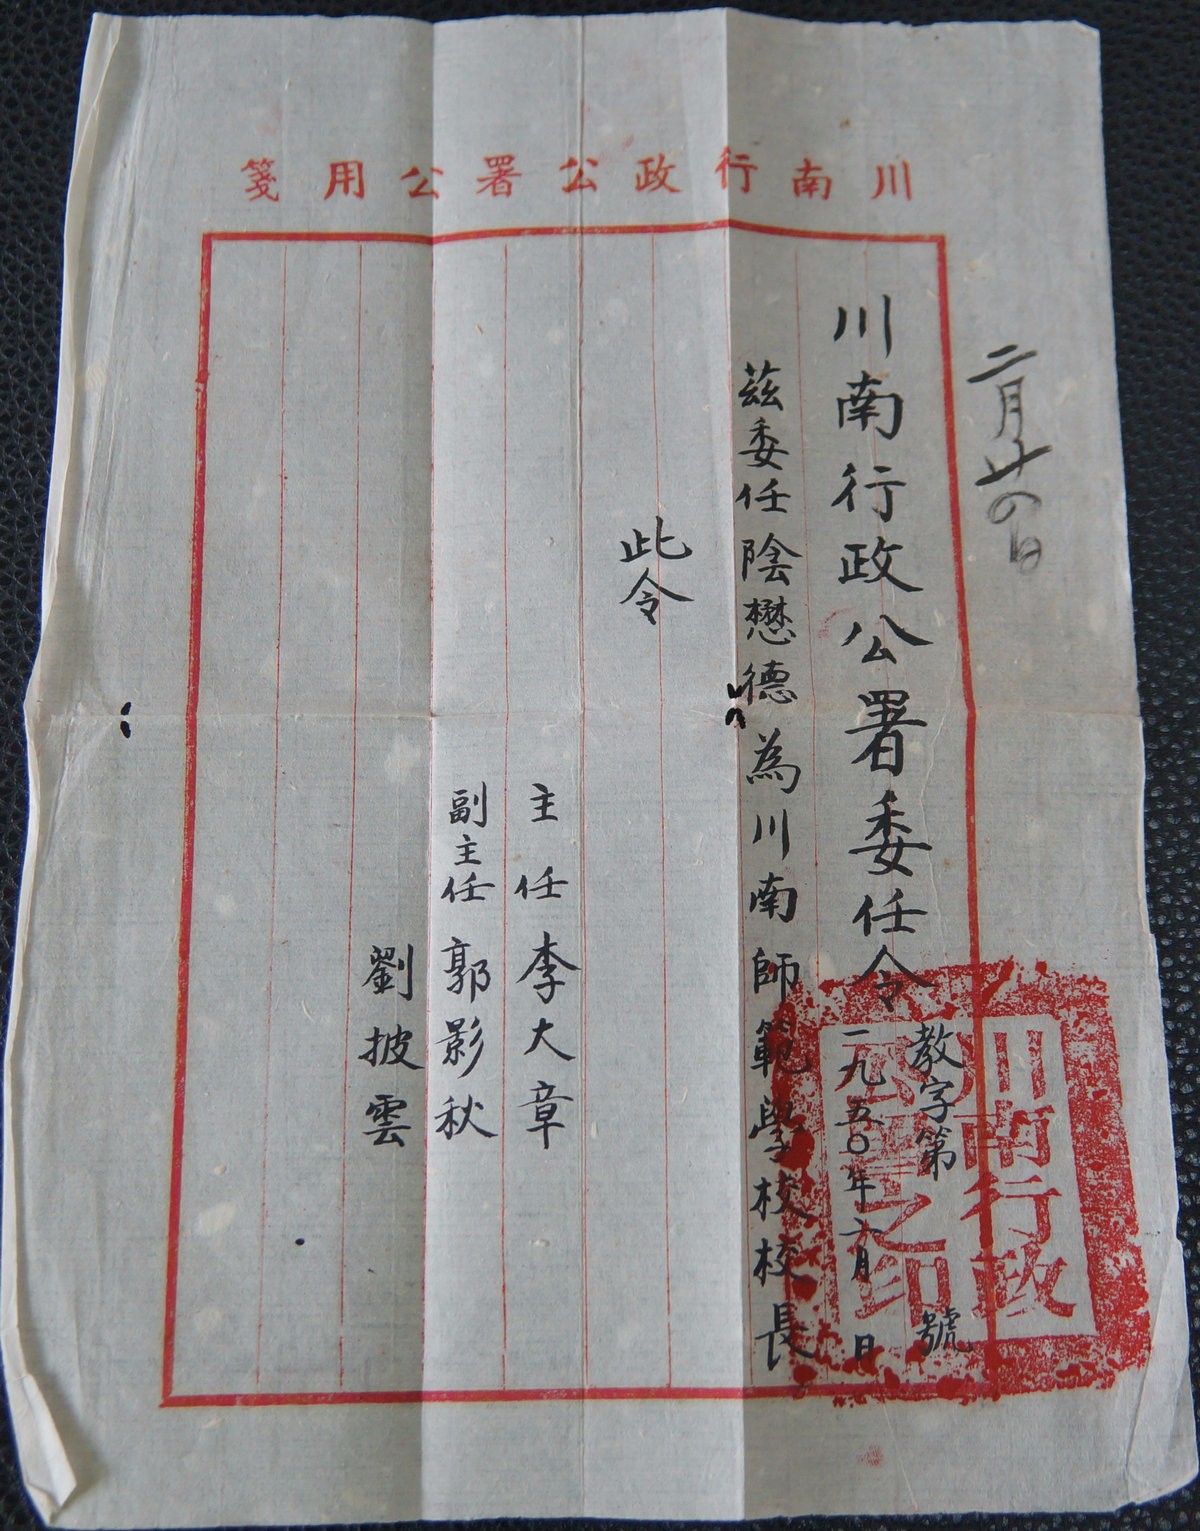 川南行政公署公用箋
二月廿四日
川南行政公署委任令
教字第 號
一九五〇年六月 日
茲委任陰懋德為川南師範學校校長
此令
主任李大章
副主任郭影秋
劉披雲
川南行政
公署之印